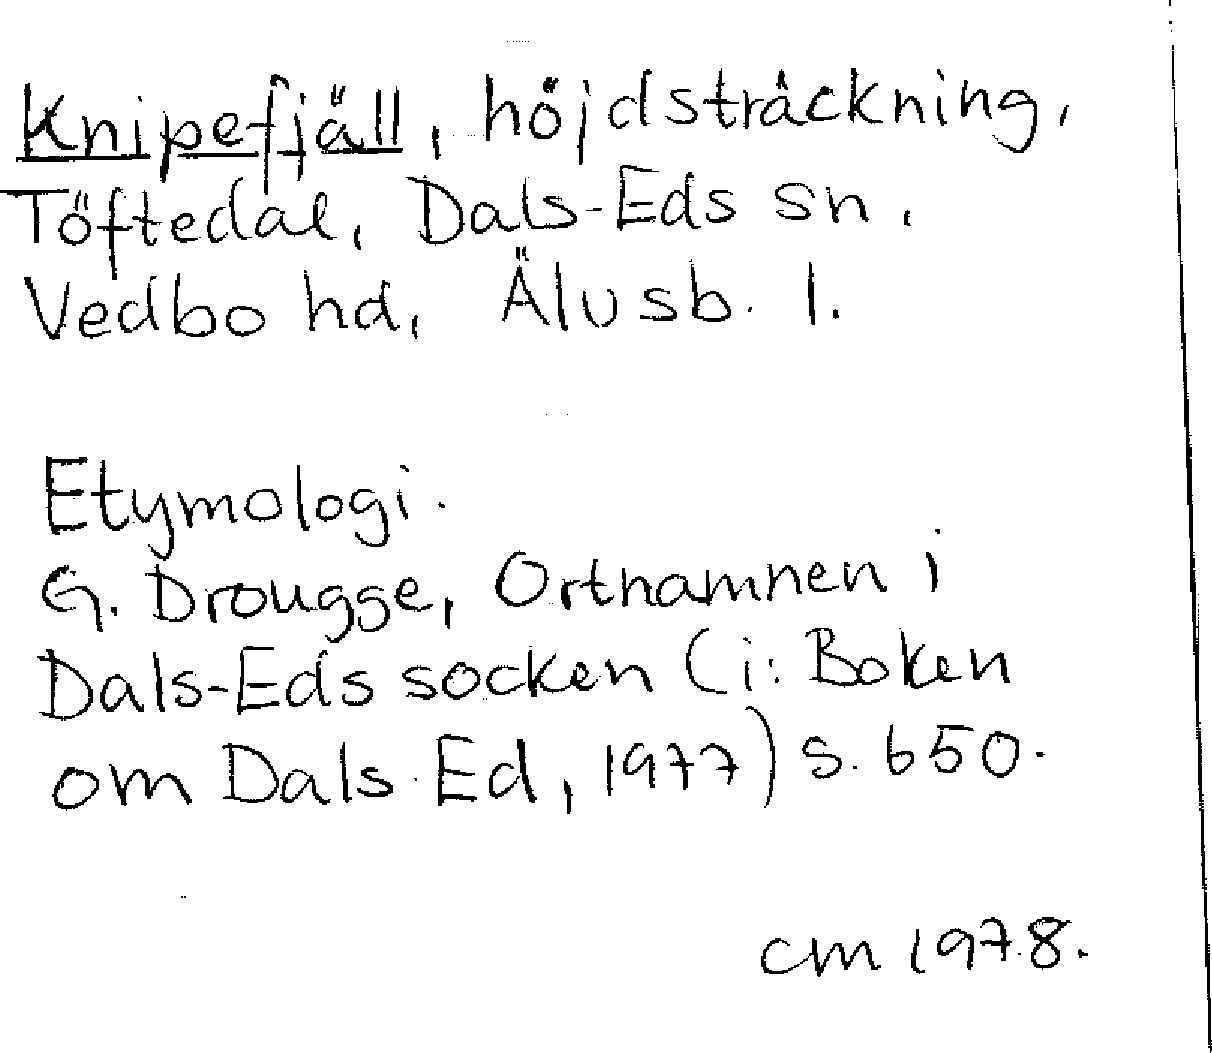 Knipefjäll, höjdsträckning,
Töftedal, Dals-Eds sn,
Vedbo hd, Älvsb. l.
Etymologi.
G. Drougge, Ortnamnen i
Dals-Eds socken (i: Boken
om Dals-Ed, 1977) s. 650.
cm 1978.